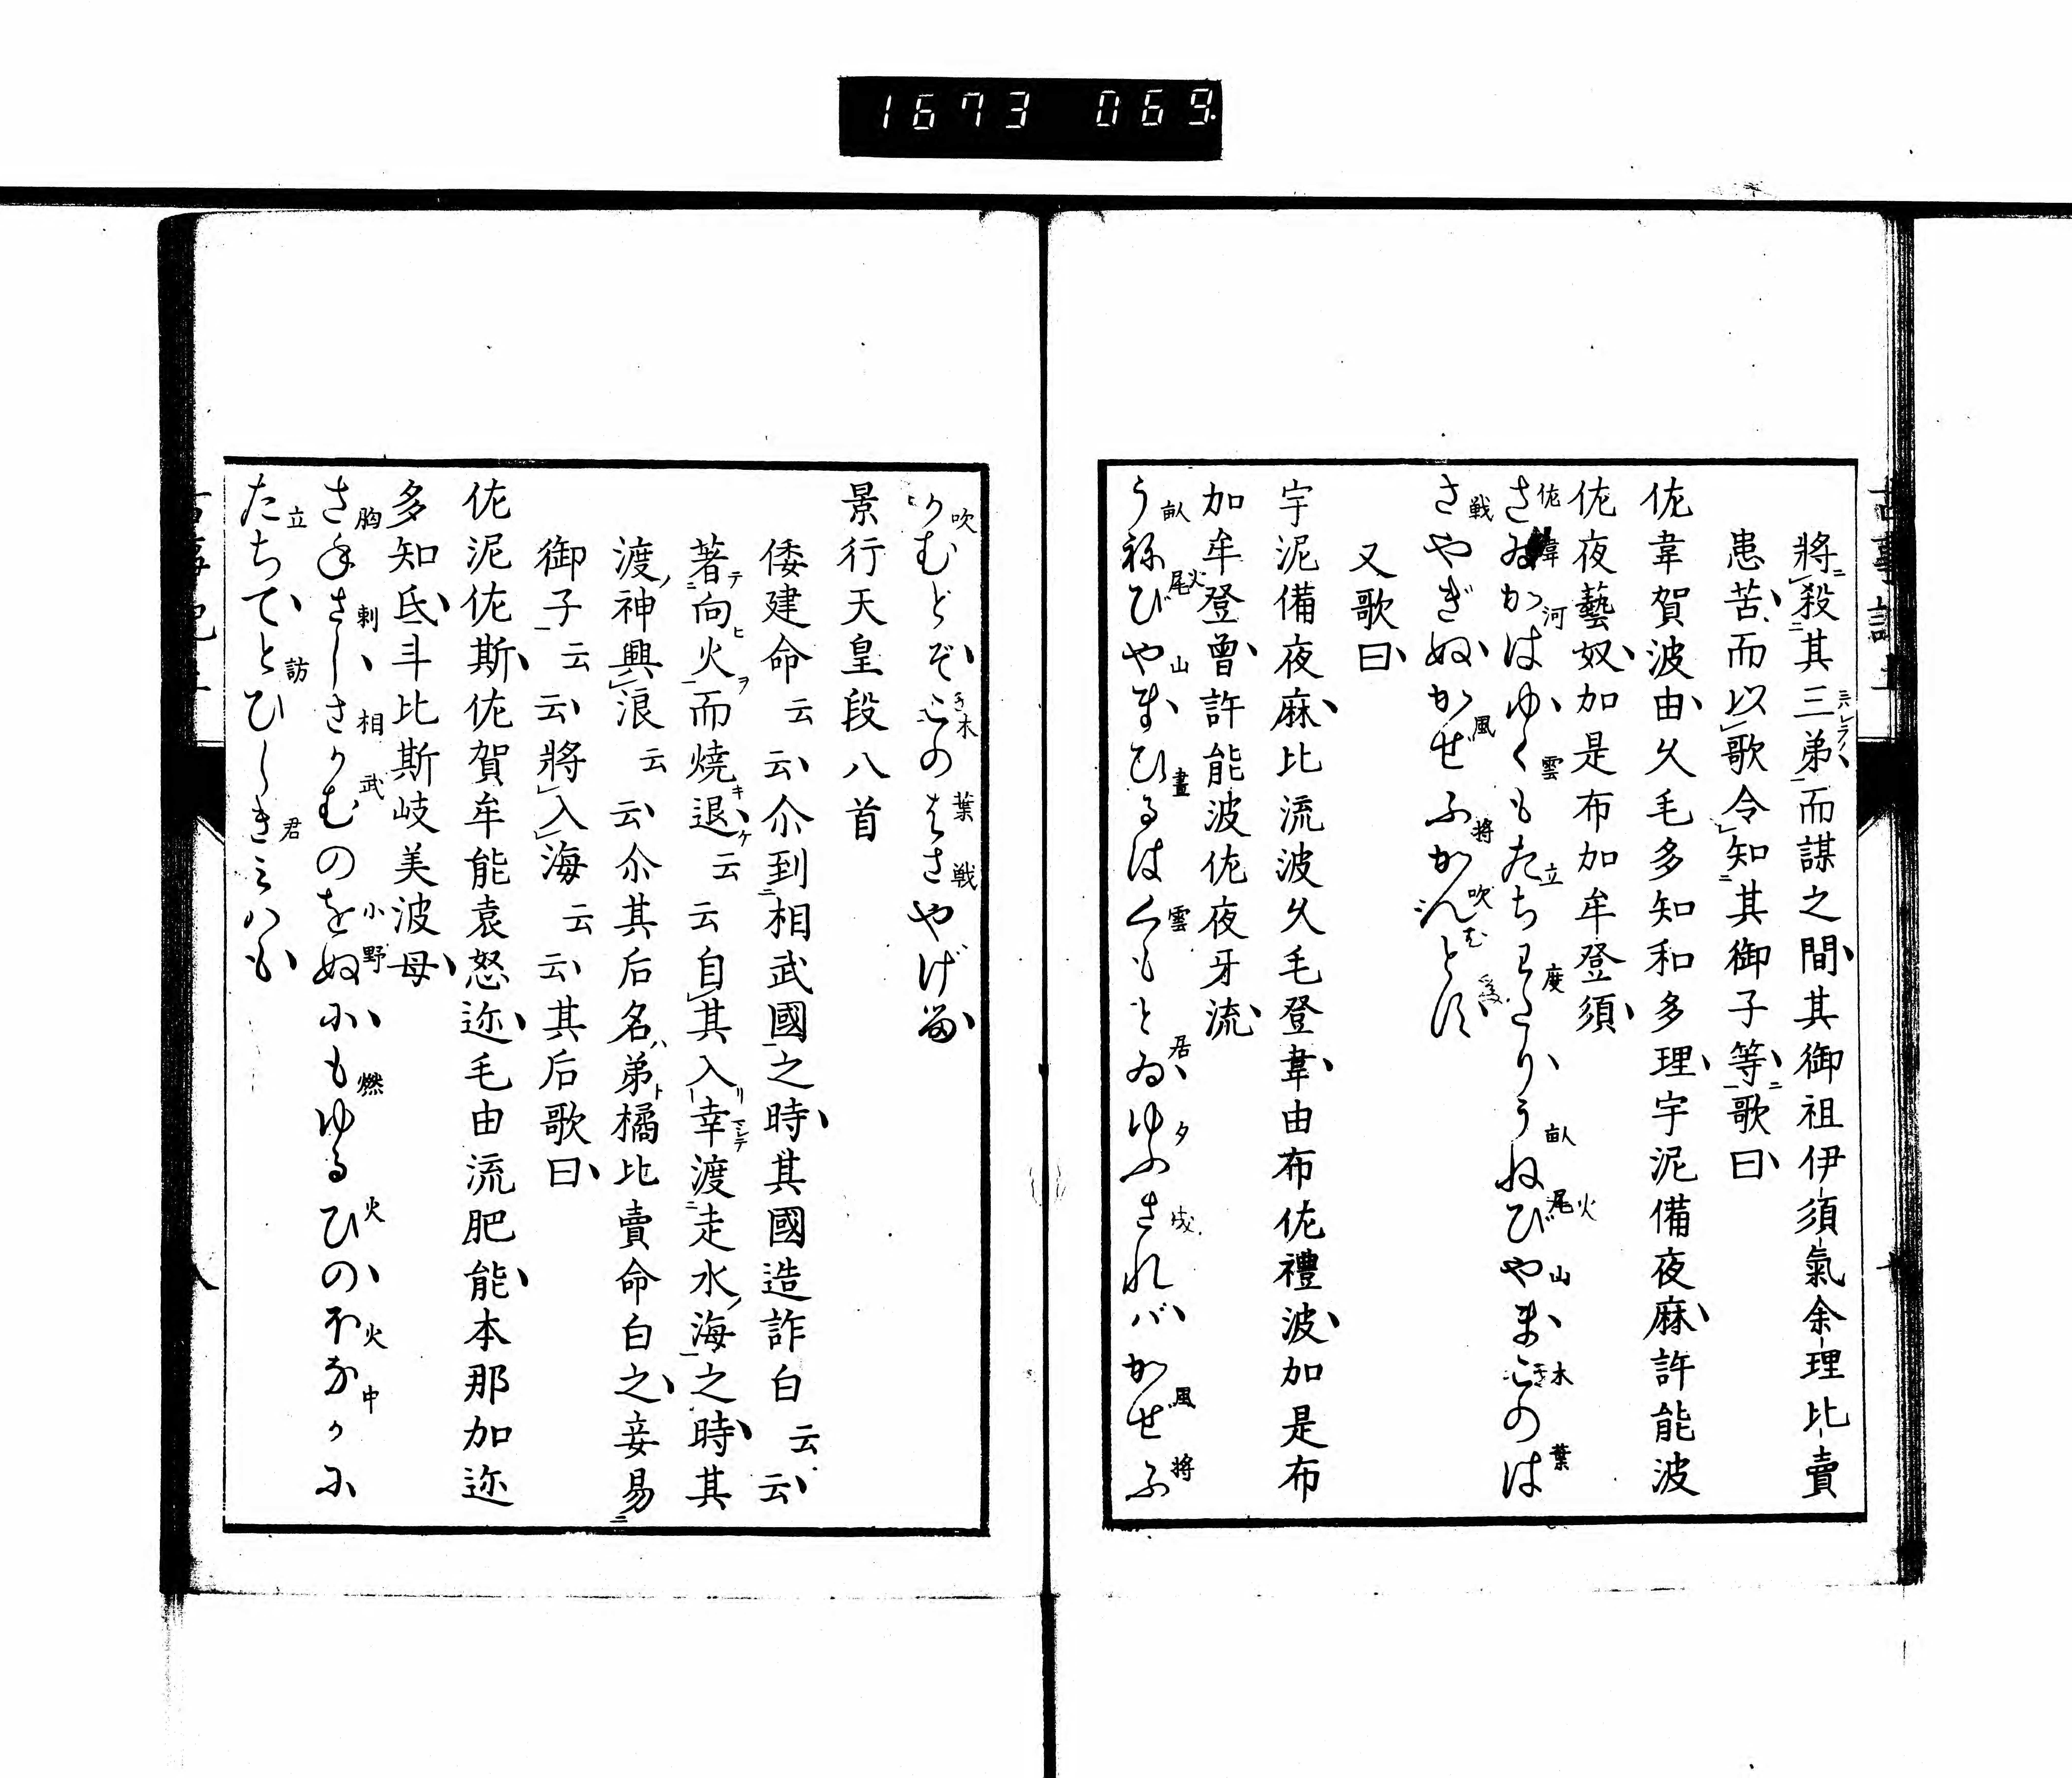 1673 069
將殺其三弟而謀之間其御祖伊須氣余理比賣
患苦而以歌令知其御子等歌曰
佐韋賀波由久毛多知和多理宇泥備夜麻許能波
佐夜藝奴加是布加牟登須
さゐがはゆくもたちわたりうねびやまこのは
さやぎぬかせふかんとす
又歌曰
宇泥備夜麻比流波久毛登韋由布佐禮波加是布
加牟登曾許能波佐夜牙流
うねびやまひるはくもとゐゆふされバかせふ
かむとぞこのはさやげる
景行天皇段八首
倭建命云云尒到相武國之時其國造詐白云云
著向火而燒退云云自其入幸渡走水海之時其
渡神興浪云云尒其后名弟橘比賣命白之妾易
御子云云將入海云云其后歌曰
佐泥佐斯佐賀牟能袁怒迩毛由流肥能本那加迩
多知氐斗比斯岐美波母
さねさしさかむのをぬにもゆるひのほなかに
たちてとひしきミハも